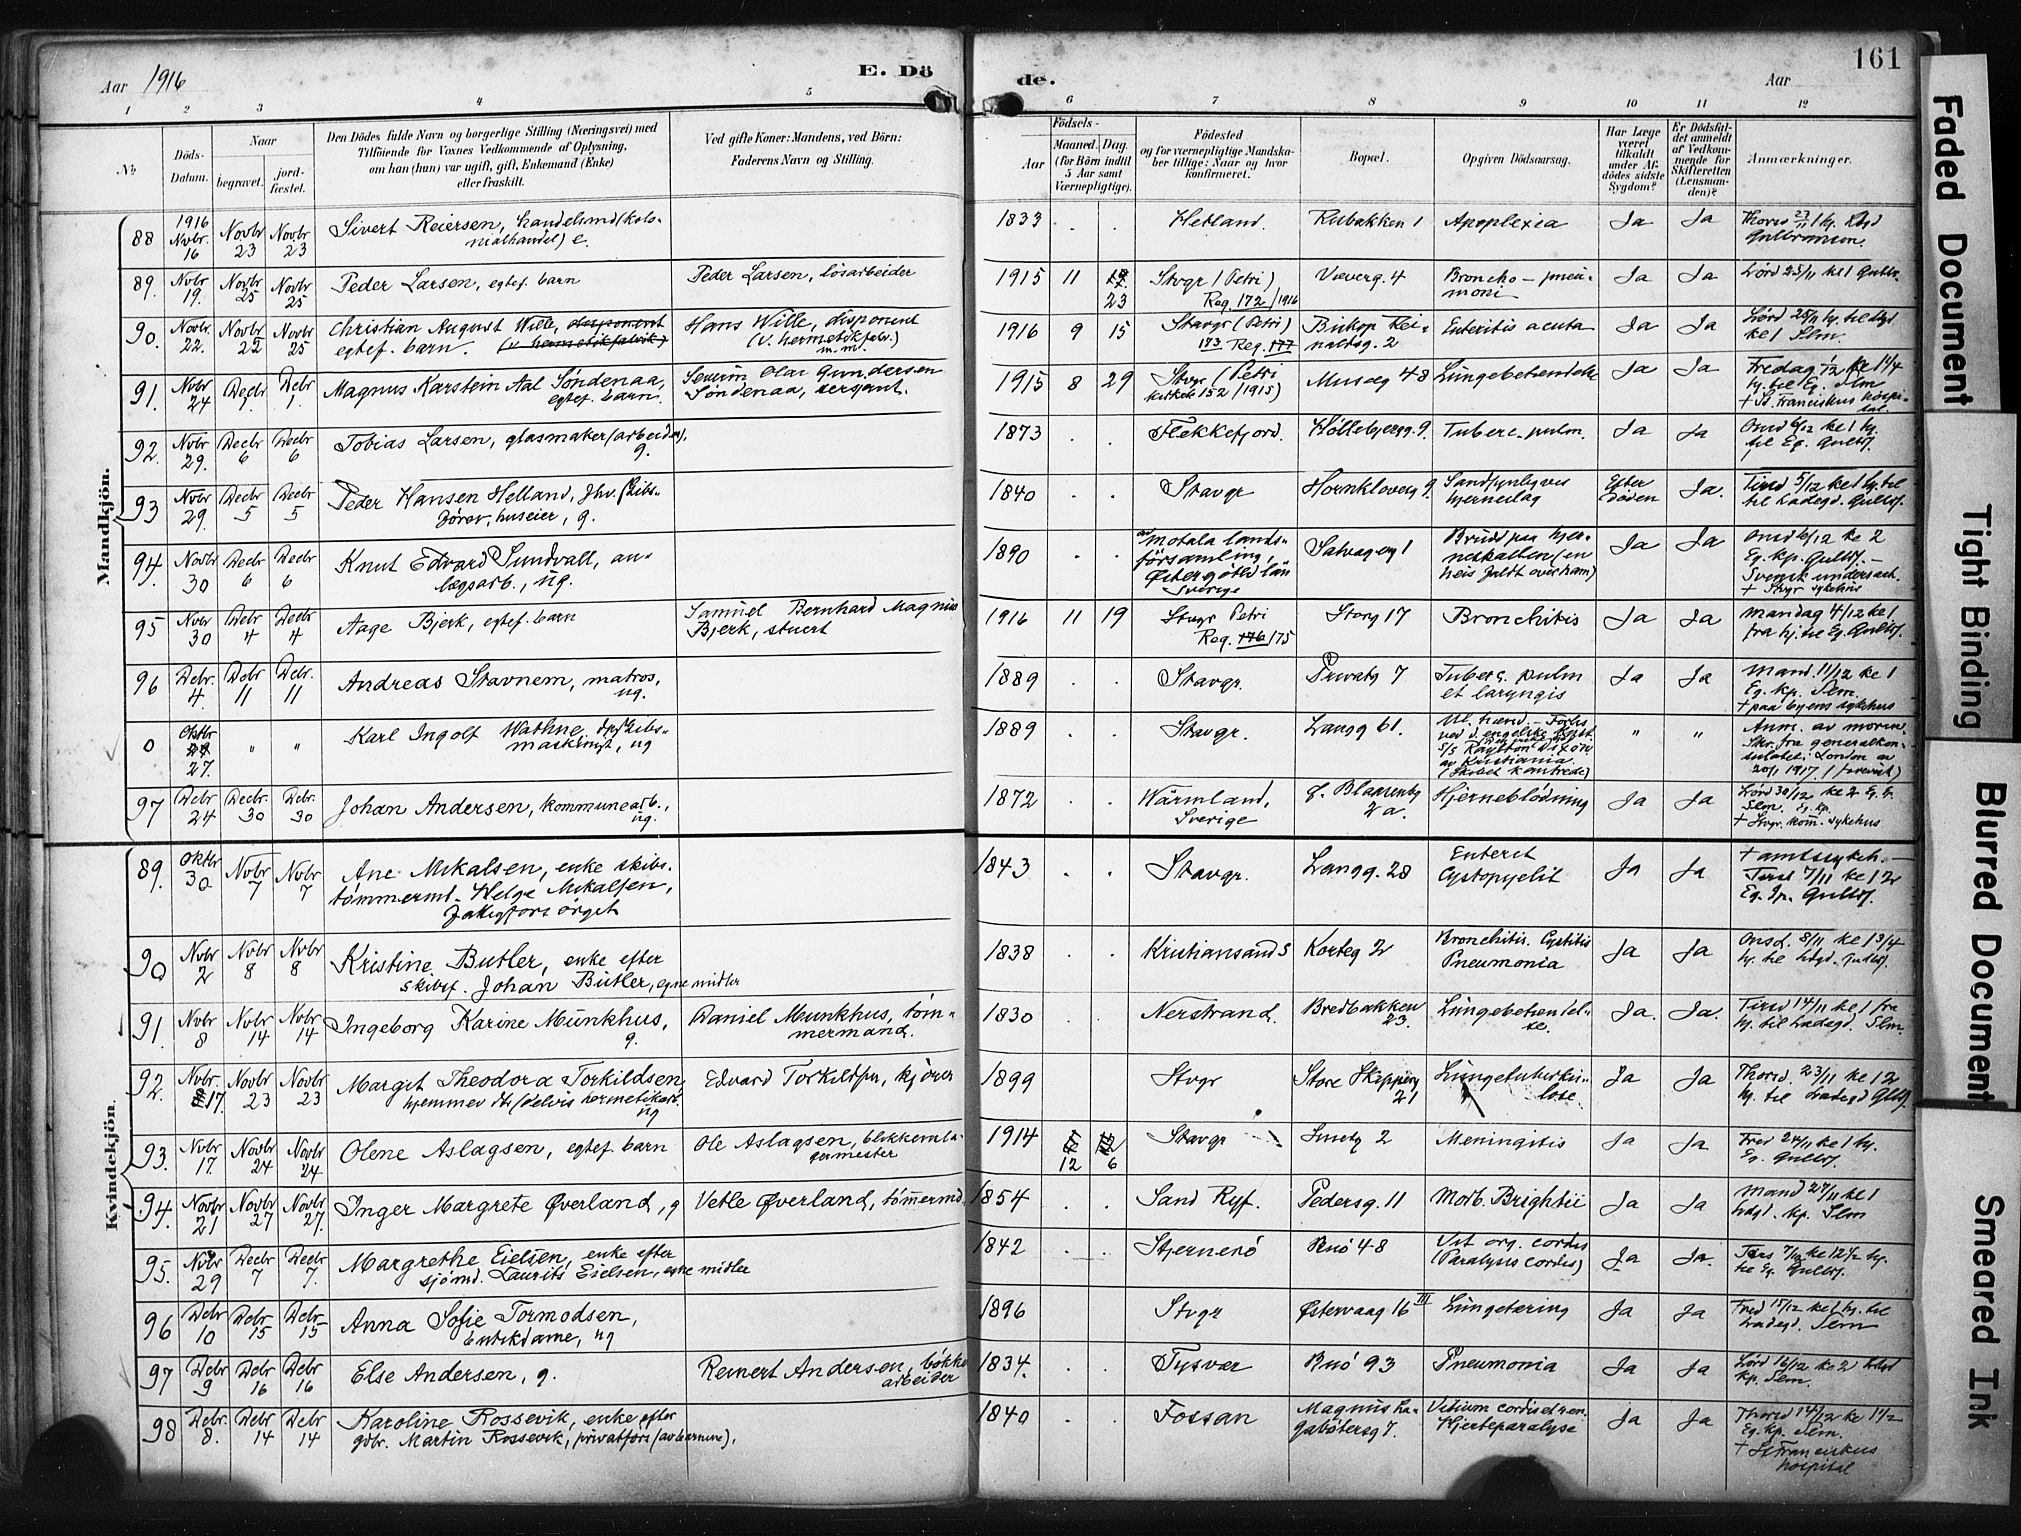 Aar 1916
E. Dö
de.
Aar
161
1 2 3 4 5 6 7 8 9 10 11 12
No.
Döds-
Datum.
Naar
begravet.
jord-
fæstet.
Den Dödes fulde Navn og borgerlige Stilling (Næringsvei) med
Tilföiende for Voxnes Vedkommende af Oplysning,
om han (hun) var ugift, gift, Enkemand (Enke)
eller fraskilt.
Ved gifte Koner: Mandens, ved Börn:
Faderens Navn og Stilling.
Födsels-
Aar
Maaned.
Dag.
(for Börn indtil
5 Aar samt
Værnepligtige).
Födested
og for værnepligtige Mandska-
ber tillige: Naar og hvor
konfirmeret.
Bopæl.
Opgiven Dödsaarsag.
Har Læge
været
tilkaldt
under Af-
dödes sidste
Sygdom?
Er Dödsfal-
det anmeldt
af Vedkom-
mende for
Skifteretten
(Lensman-
den)?
Anmærkninger.
Mandkjön.
88 1916 Nvbr. 16 Novbr 23 Novbr 23 Sivert Reiersen, handelsmd (kolo-
nialhandel) e. 1833 . . Hetland. Rubakken 1 Apoplexia Ja Ja
89. Nvbr 19. Novbr 25 Novbr 25 Peder Larsen, egtef. barn Peder Larsen, lösarbeider 1915 11 23 Stvgr (Petri)
Reg. 172/1916 Væverg. 4 Broncho-pneu-
moni Ja Ja Lörd 25/11 kl 1 Gulbr.
90. Novbr. 22. Novbr 22 Novbr 25 Christian August Wille, disponent
egtef. barn. (v hermetikfabrik) Hans Wille, disponent
(v. hermetikfabr.)
m.m. 1916 9 15 Stavgr (Petri)
173 Reg. 177 Biskop Rei-
naldsg. 2 Enteritis acuta Ja Ja
91. Nvbr 24 Decbr 1. Debr 1. Magnus Karstein Aal Söndenaa,
egtef. barn. Severin Olai Gundersen
Söndenaa, sergeant. 1915 8 29 Stvgr (Petri
152/1915) Museg 48 Lungebetendelse Ja Ja Fredag 1/12
+ St. Franciskus hospi-
tal.
92. Nvbr 29. Decbr 6 Decbr 6 Tobias Larsen, glasmaker (arbeider).
g. 1873 . . Flekkefjord. Höllebjergg. 9. Tuberc. pulm. Ja Ja Onsd 6/12 kl 1 hj.
til Eg. Gulbr.
93 Nvbr 29. Decbr 5 Decbr 5 Peder Hansen Helland, fhv. skibs-
förer, huseier, g. 1840 . . Stavgr Hornkloveg 9. Sandsynligvis
hjerneslag Efter
döden Ja. Tirsd 5/12 kl 1 hj. til
til Ladegd. Gulbr.
94. Novbr 30 Decbr 6 Decbr 6 Knut Edvard Sundvall, an-
lægsarb., ug. 1890 . . Motala lands-
församling,
Östergötld län
Sverige Salvageg 1 Brudd paa hjer-
neskallen (en
heis faldt over ham) Ja Ja Onsd 6/12 kl 2
Eg. kp. Gulbr. -
Svensk undersaat.
+ Stvgr sykehus
95 Nvbr 30 Debr 4 Decbr 4 Aage Bjerk, egtef. barn Samuel Bernhard Magnus
Bjerk, stuert 1916 11 19 Stvgr Petri
Reg. 176/175 Storg 17 Bronchitis Ja Ja Mandag 4/12 kl 1
fra hj. til Eg. Gulbr.
96 Debr. 4. Debr 11 Debr. 11 Andreas Stavnem, matros,
ug. 1889 . . Stavgr. Privatg 7 Tuberc. pulm
et laryngis Ja Ja Mand. 11/12 kl 1
Eg. kp. Slm.
+ paa byens sykehus
0 Oktbr 27. " " Karl Ingolf Wathne, skibs-
maskinist, ug 1889 . . Stavgr. Langg 61.
S/S Raylton Dixon
av Kristiania " " Anm. av moren.
Skr. fra generalkon-
sulatet i London av
20/1 1917.
97 Debr 24 Decbr. 30 Debr. 30 Johan Andersen, kommunearb.,
ug. 1872 . . Wärmland,
Sverige g. Blaasenbg
2a. Hjerneblödning Ja Ja Lörd 30/12 kl 2
Slm. Eg. kp.
+ Stvgr. komm. sykehus
Kvindekjön.
89. Oktbr 30 Nvbr 7 Nvbr 7 Ane Mikalsen, enke skibs-
tømmermd. Helge Mikalsen,
fattigforsörget 1843 . . Stavgr. Langg. 28 Enterit
Cystopyelit Ja Ja + amtssykeh. -
Tirsd 7/11 kl 12
Eg. kp. Gulbr.
90 Nvbr 2 Nvbr 8 Nvbr 8 Kristine Butler, enke efter
skibsf. Johan Butler, egne midler 1838 . . Kristiansand S Korteg 2 Bronchitis. Cystitis
Pneumonia Ja Ja Onsd. 8/11 kl 13/4
hj. til Ldgd. Gulbr.
91. Nvbr 8 Nvbr 14 Nvbr 14 Ingeborg Karine Munkhus,
g. Daniel Munkhus, töm-
mermand. 1830 . . Nerstrand. Bredbakken
23. Lungebetendel-
se. Ja. Ja. Tirsd 14/11 kl 1 fra
hj. til Ladegd. Slm.
92. Nvbr. 17. Novbr 23 Novbr 23 Margit Theodora Torkildsen,
hjemmev. dtr (delvis hermetikarb.
ug Edvard Torkildsen, kjörer 1899 . . Stvgr Store Skipperg
21 Lungetuberku-
lose. Ja Ja Thorsd. 23/11 kl 12
hj. til Ladegd Gulbr.
93. Nvbr 17. Novbr 24 Novbr 24 Olene Aslagsen, egtef. barn Ole Aslagsen, blikkenla-
germester 1914 12 6 Stavgr Smetg 2 Meningitis Ja Ja Fred 24/11 kl 1 hj.
Eg. Gulbr.
94. Novbr 21 Novbr 27 Novbr 27. Inger Margrete Øverland, g Vetle Øverland, tömmermd. 1854 . . Sand Ryf. Pedersg. 11 Morb. Brightii Ja Ja Mand 27/11 kl 1
Ldgd. kp. Slm
95. Nvbr 29 Decbr 7 Decbr 7. Margrethe Eielsen, enke efter
sjömd. Laurits Eielsen, egne midler 1842 . . Stjernerö Buö 48 Vit org. cordis
(Paralysis cordis) Ja Ja. Tors 7/12 kl 12 1/2 hj.
til Eg. Gulbr.
96 Debr 10 Debr 15 Debr 15 Anna Sofie Tormodsen,
butikdame, ug 1896 . . Stvgr Østervaag 16 III Lungetæring Ja Ja Fred 15/12 kl 1 hj. til
Ladegd. Slm
97 Debr 9 Debr 16 Debr 16 Else Andersen, g. Reinert Andersen, bökker
arbeider 1834. . . Tysvær Buö 93 Pneumonia Ja Ja Lörd 16/12 kl 2 Ldgd
kp. Slm.
98 Debr. 8. Debr 14 Debr 14 Karoline Rossevik, enke efter
gdbr. Martin Rossevik, privatfors (av barnene). 1840 . . Fossan Magnus La-
gabötersg 7. Vitium cordis et ren.
Hjerteparalyse Ja Ja Thorsd 14/12 kl 1 1/2
Eg. kp. Slm.
+ St Franciskus
hospital
Faded Document
Tight Binding
Blurred Document
Smeared Ink